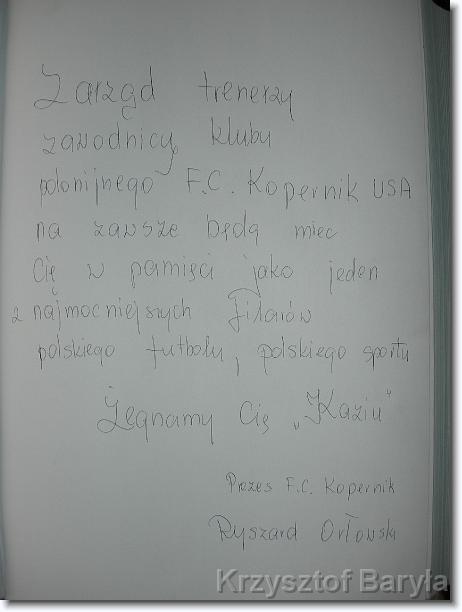 Zarząd trenerzy
zawodnicy, kluby
polonijnego F.C. Kopernik USA
na zawsze będą miec
Cię w pamięci jako jeden
z najmocniejszych Filarów
polskiego futbolu, polskiego sportu
Żegnamy Cię „Kaziu"
Prezes F.C. Kopernik
Ryszard Orłowski
Krzysztof Baryła